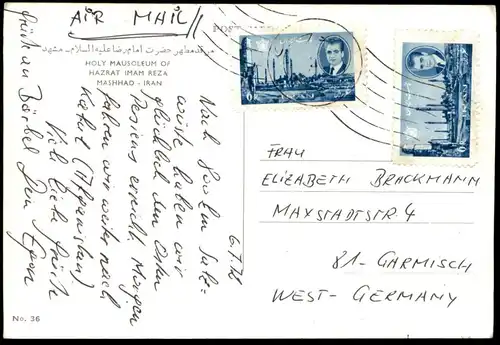 AIR MAIL
POST
مرقد مطهر حضرت امام رضا علیه السلام - مشهد
HOLY MAUSOLEUM OF
HAZRAT IMAM REZA
MASHHAD - IRAN
6.7.72
Nach 800 km Salz-
wüste haben wir
glücklich den Osten
Persiens erreicht. Morgen
fahren wir weiter nach
Kabul (Afghanistan)
Viele liebe Grüße
Dein Egon
Grüße an Bärbel
FRAU
ELIZABETH BRACKMANN
MAXSTADTSTR. 4
81- GARMISCH
WEST- GERMANY
No. 36